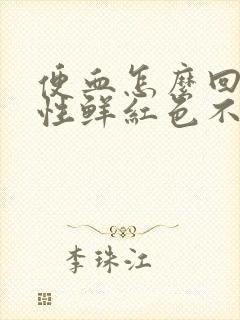 便血怎麽回
性鲜紅色不
李珠江